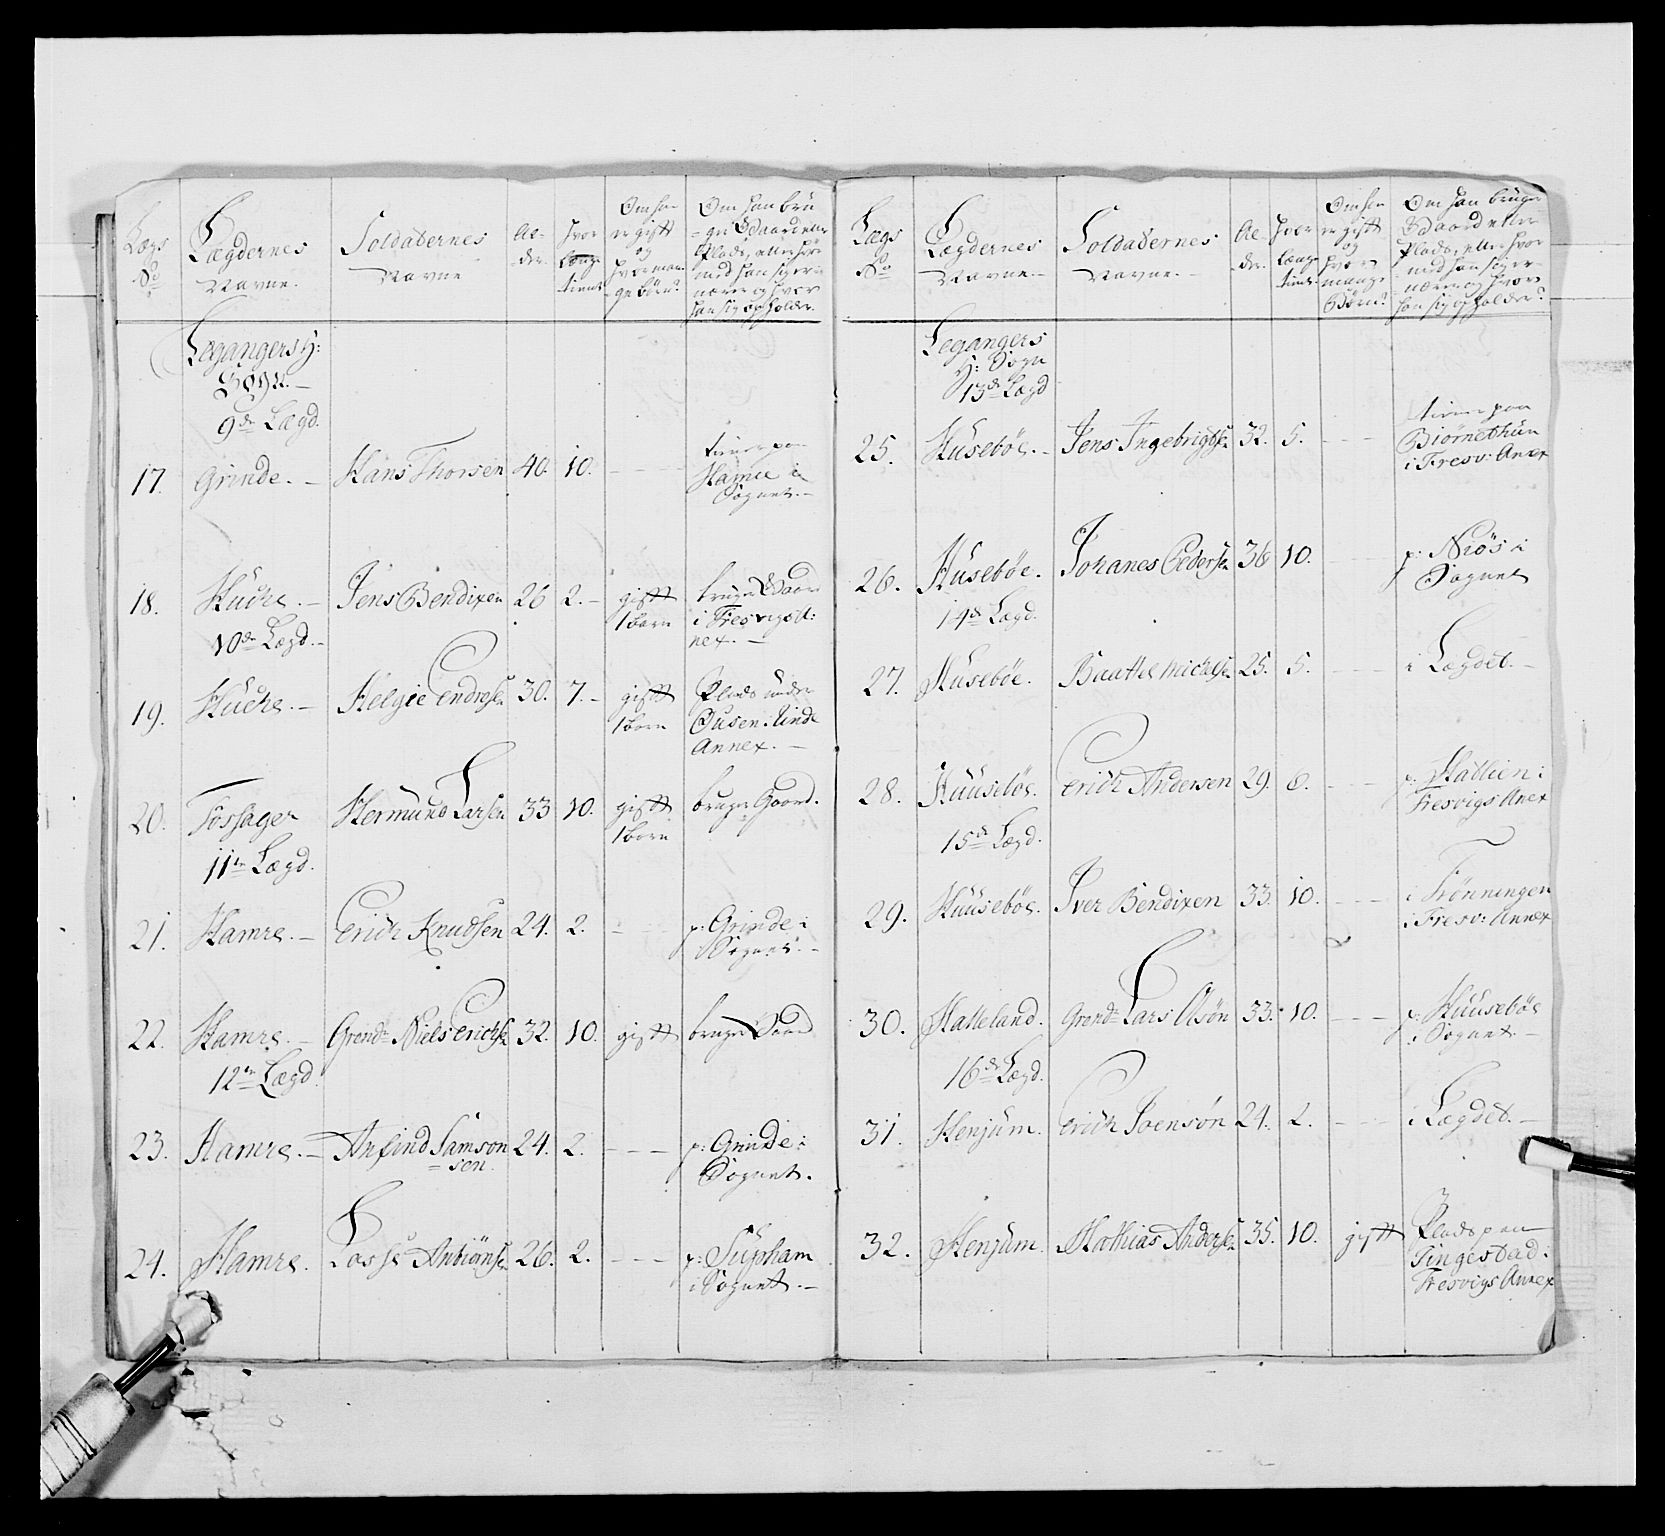 Lægs
No
Lægdernes
Navne.
Soldaternes
Navne
Al-
der.
Hvor
længe
tient
Om han
er gift
og
hvor man-
ge børn?
Om han bru
=ger Gaard eller
Plads, eller hvor
med han sig er-
nærer og hvor
han sig opholder.
Legangers H:
Sogn.-
9de Lægd.
17. Grinde.- Hans Thorsen 40. 10. - - - tiener paa
Hamre i
Sognet.-
18. Hücke.- Jens Bendixen 26 2.- gift bruger Gaard
1 barn i Fresvigs A:
nex.-
10de Lægd.-
19. Hücke.- Helgie Endresen 30. 7.- gift Plads under
1 barn Ousen: Tinde
Annex.-
20. Fossager Hermund Larsen 33 10. gift bruger Gaard.
1 barn
11te Lægd.
21. Hamre.- Erich Knudsen 24. 2. - - p: Grinde i
Sognet.-
22. Hamre.- Grend: Niels Erichse 32. 10. gift bruger Gaard
12te Lægd.
23. Hamre.- Anfind Samson 24. 2. - - - p: Grinde i
=sen. Sognet.
24. Hamre. Lasse Anbiønse 26. 2. - - - p: Süpham
i Sognet.-
Lægs
No
Lægdernes
Navne.-
Soldaternes
Navne.-
Al-
der.
Hvor
længe
tient.
Om han
er gift
og
hvor
mange
Børn?
Om han bruger
Gaard eller
Plads, eller hvor
med han sig er-
nærer og hvor
han sig opholder?
Legangers
H: Sogn
13de Lægd
25. Husebøe.- Jens Ingebrigtse 32. 5. - - - tiener paa
Biørnethun
i Fresv: Anex
26. Husebøe. Johanes Pederse 36 10. - - p: Niøs i
Sognet
14de Lægd.
27. Husebøe. Baattel Michelse 25. 5. - - - i Lægdet.-
28. Huusebøe. Erich Andersen 29. 6. - - - p: Hallien i
Fresvigs Anex
15de Lægd.
29. Huusebøe. Iver Bendixen 33. 10. - - - i Frønningen
i Fresv: Annex
30. Halleland. Grend: Lars Olsøn 33. 10. - - - p: Huusebøe
i Sognet.-
16de Lægd.
31. Henjum. Erich Svensøn 24. 2. - - - i Lægdet.-
32. Henjum. Mathias Anderse 35. 10. gift Plads paa
Tingestad i
Fresvigs Annex